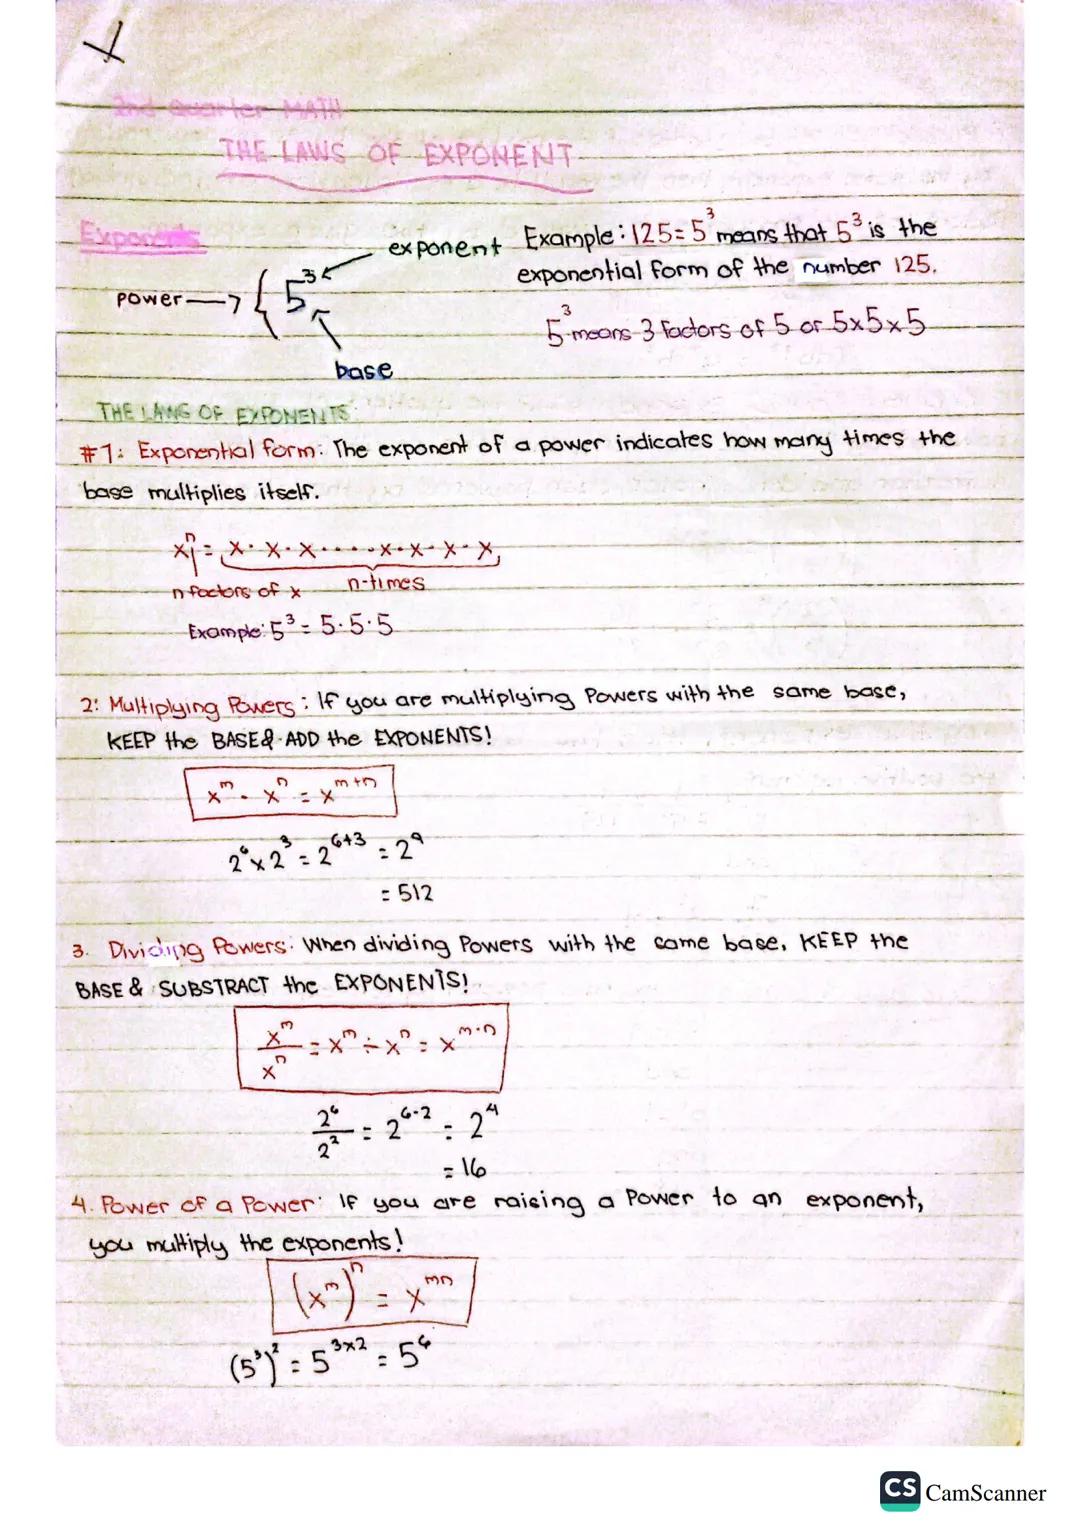 2nd Quarter MATH
THE LAWS OF EXPONENT
Exponents
exponent
power → { 5³
base
Example: 125 = 5³ means that 5³ is the
exponential form of the number 125.
5³ means 3 factors of 5 or 5x5x5
THE LAWS OF EXPONENTS:
#1: Exponential form: The exponent of a power indicates how many times the
base multiplies itself.
xⁿ = x · x · x · · · · · x · x · x · x
n factors of x n-times
Example: 5³ = 5·5·5
2: Multiplying Powers: If you are multiplying Powers with the same base,
KEEP the BASE & ADD the EXPONENTS!
xᵐ · xⁿ = xᵐ⁺ⁿ
2⁶ x 2³ = 2⁶⁺³ = 2⁹
= 512
3. Dividing Powers: When dividing Powers with the same base, KEEP the
BASE & SUBSTRACT the EXPONENTS!
xᵐ/xⁿ = xᵐ ÷ xⁿ = xᵐ⁻ⁿ
2⁶/2² = 2⁶⁻² = 2⁴
= 16
4. Power of a Power: If you are raising a Power to an exponent,
you multiply the exponents!
(xᵐ)ⁿ = xᵐⁿ
(5³)² = 5³ˣ² = 5⁶
CS CamScanner